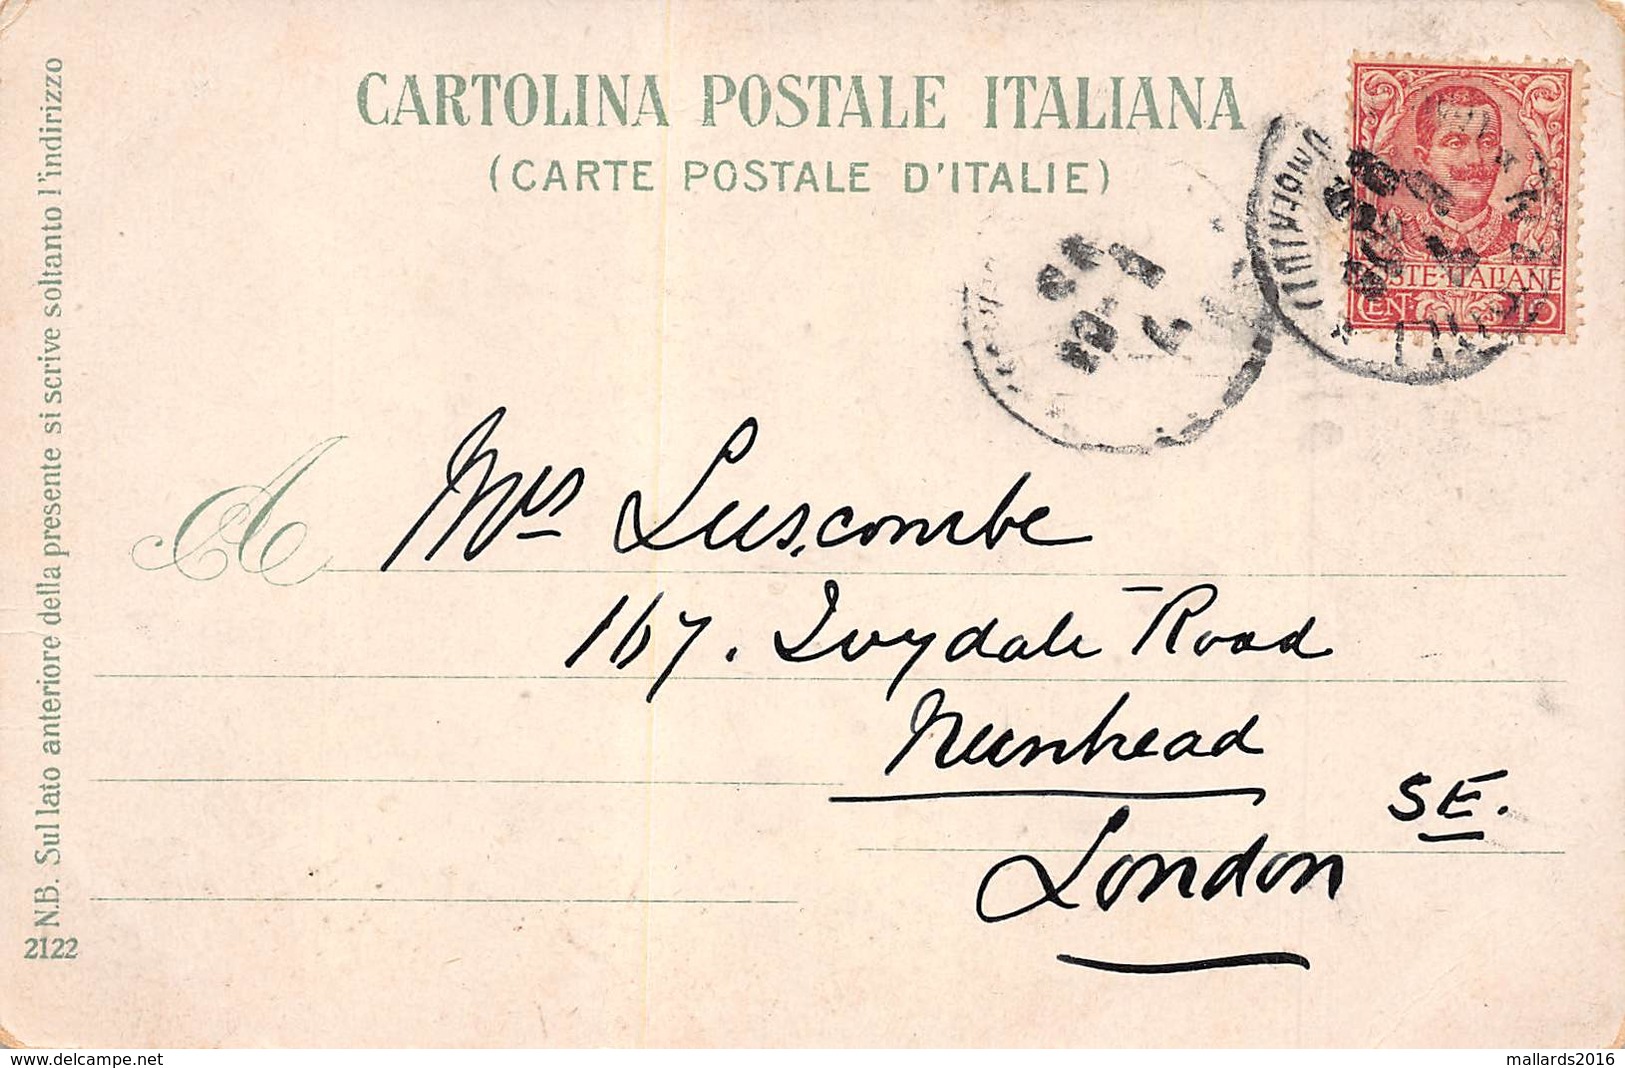 CARTOLINA POSTALE ITALIANA
(CARTE POSTALE D'ITALIE)
POSTE-ITALIANE
CEN. 10
N.B. Sul lato anteriore della presente si scrive soltanto l'indirizzo
2122
A Mrs Luscombe
167. Ivydale Road
Nunhead
SE.
London
www.delcampe.net
mallards2016